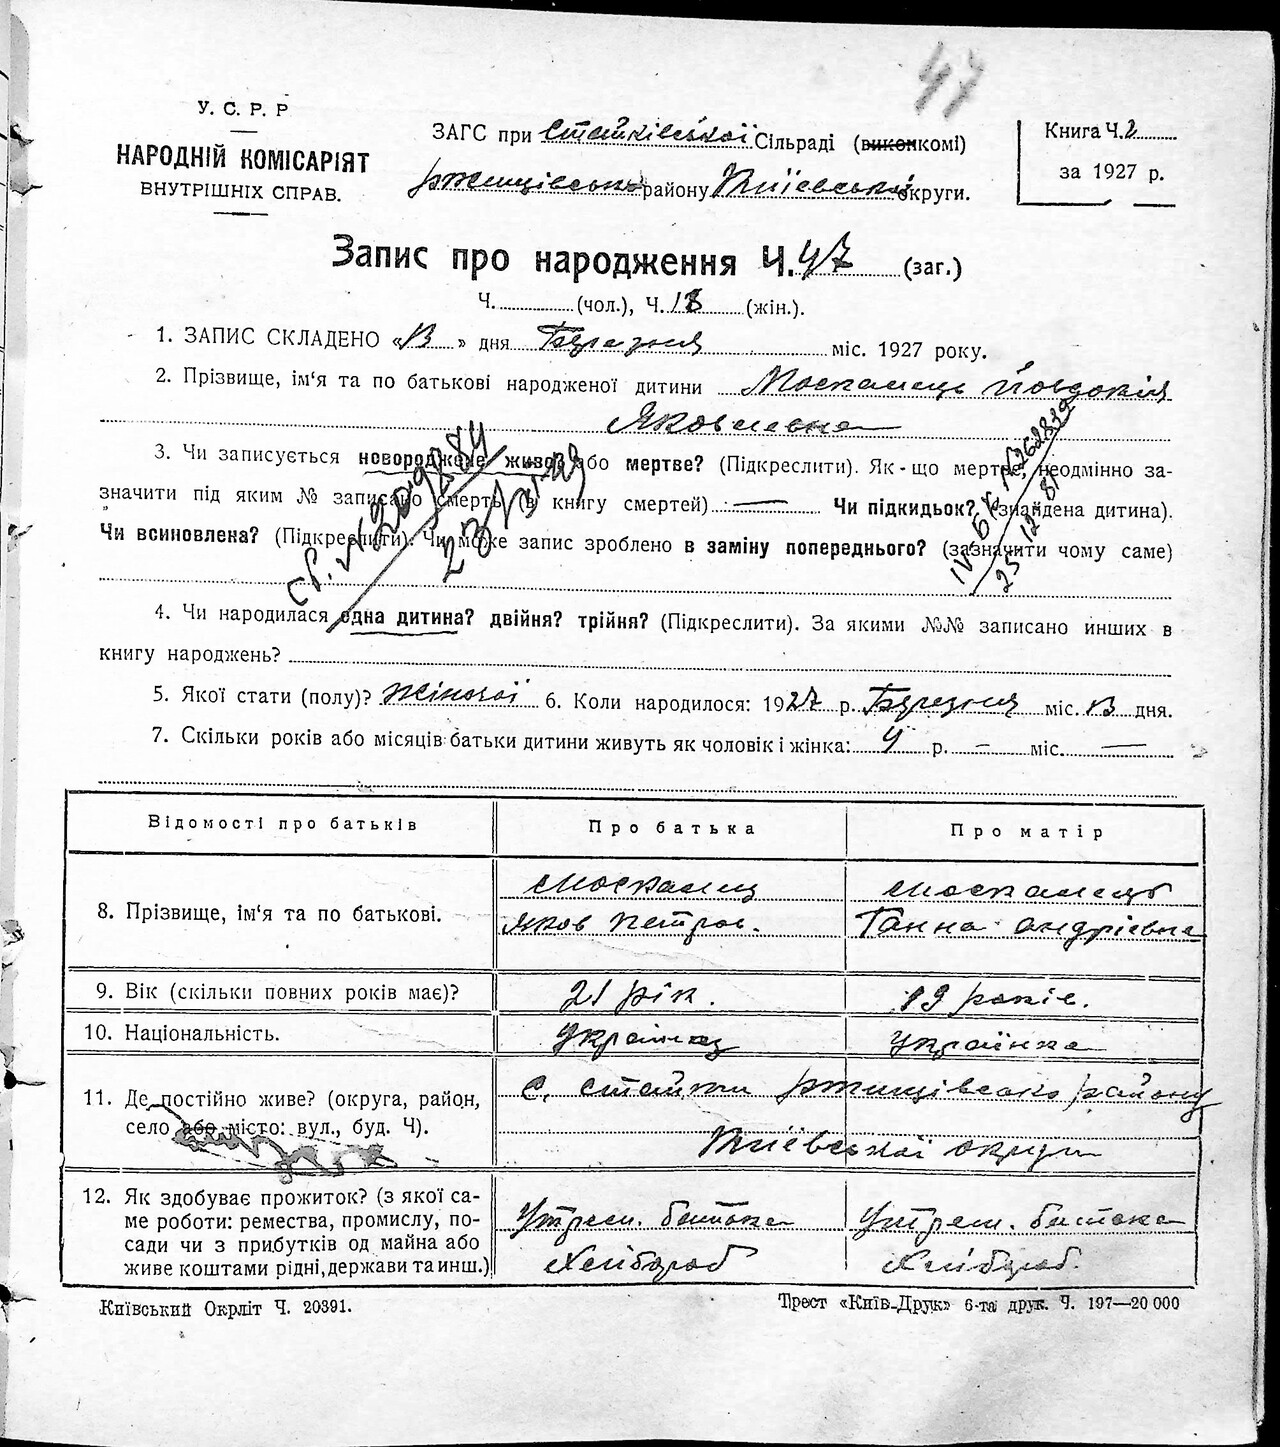 47
У. С. Р. Р
НАРОДНІЙ КОМІСАРІЯТ
ВНУТРІШНІХ СПРАВ.
ЗАГС при Стайківської Сільраді (виконкомі)
Ржищівськ району Київської округи.
Книга Ч. 2
за 1927 р.
Запис про народження Ч. 47 (заг.)
Ч. (чол.), Ч. 18 (жін.).
1. ЗАПИС СКЛАДЕНО « 13 » дня Березня міс. 1927 року.
2. Прізвище, ім'я та по батькові народженої дитини Москалець Йовдокія
Яковлевна
3. Чи записується новороджене живе? або мертве? (Підкреслити). Як-що мертве, неодмінно за-
значити під яким № записано смерть (в книгу смертей) — Чи підкидьок? (знайдена дитина).
Чи всиновлена? (Підкреслити). Чи може запис зроблено в заміну попереднього? (зазначити чому саме)
4. Чи народилася одна дитина? двійня? трійня? (Підкреслити). За якими №№ записано инших в
книгу народжень?
5. Якої стати (полу)? Жіночої 6. Коли народилося: 1927 р. Березня міс. 13 дня.
7. Скільки років або місяців батьки дитини живуть як чоловік і жінка: 4 р. – міс. —
Відомості про батьків Про батька Про матір
8. Прізвище, ім'я та по батькові. Москалец Яков Петров. Москалець Ганна Андріевна
9. Вік (скільки повних років має)? 21 рік. 19 років.
10. Національність. Українец Українка
11. Де постійно живе? (округа, район, с. Стайки Ржищівсько району
село або місто: вул., буд. Ч). Київської округи
12. Як здобуває прожиток? (з якої са-
ме роботи: ремества, промислу, по- Утрем. батька Утрем. батька
сади чи з прибутків од майна або
живе коштами рідні, держави та инш.) Хлібороб Хлібороб.
Київський Окрліт Ч. 20391.
Трест «Київ-Друк» 6-та друк. Ч. 197—20 000